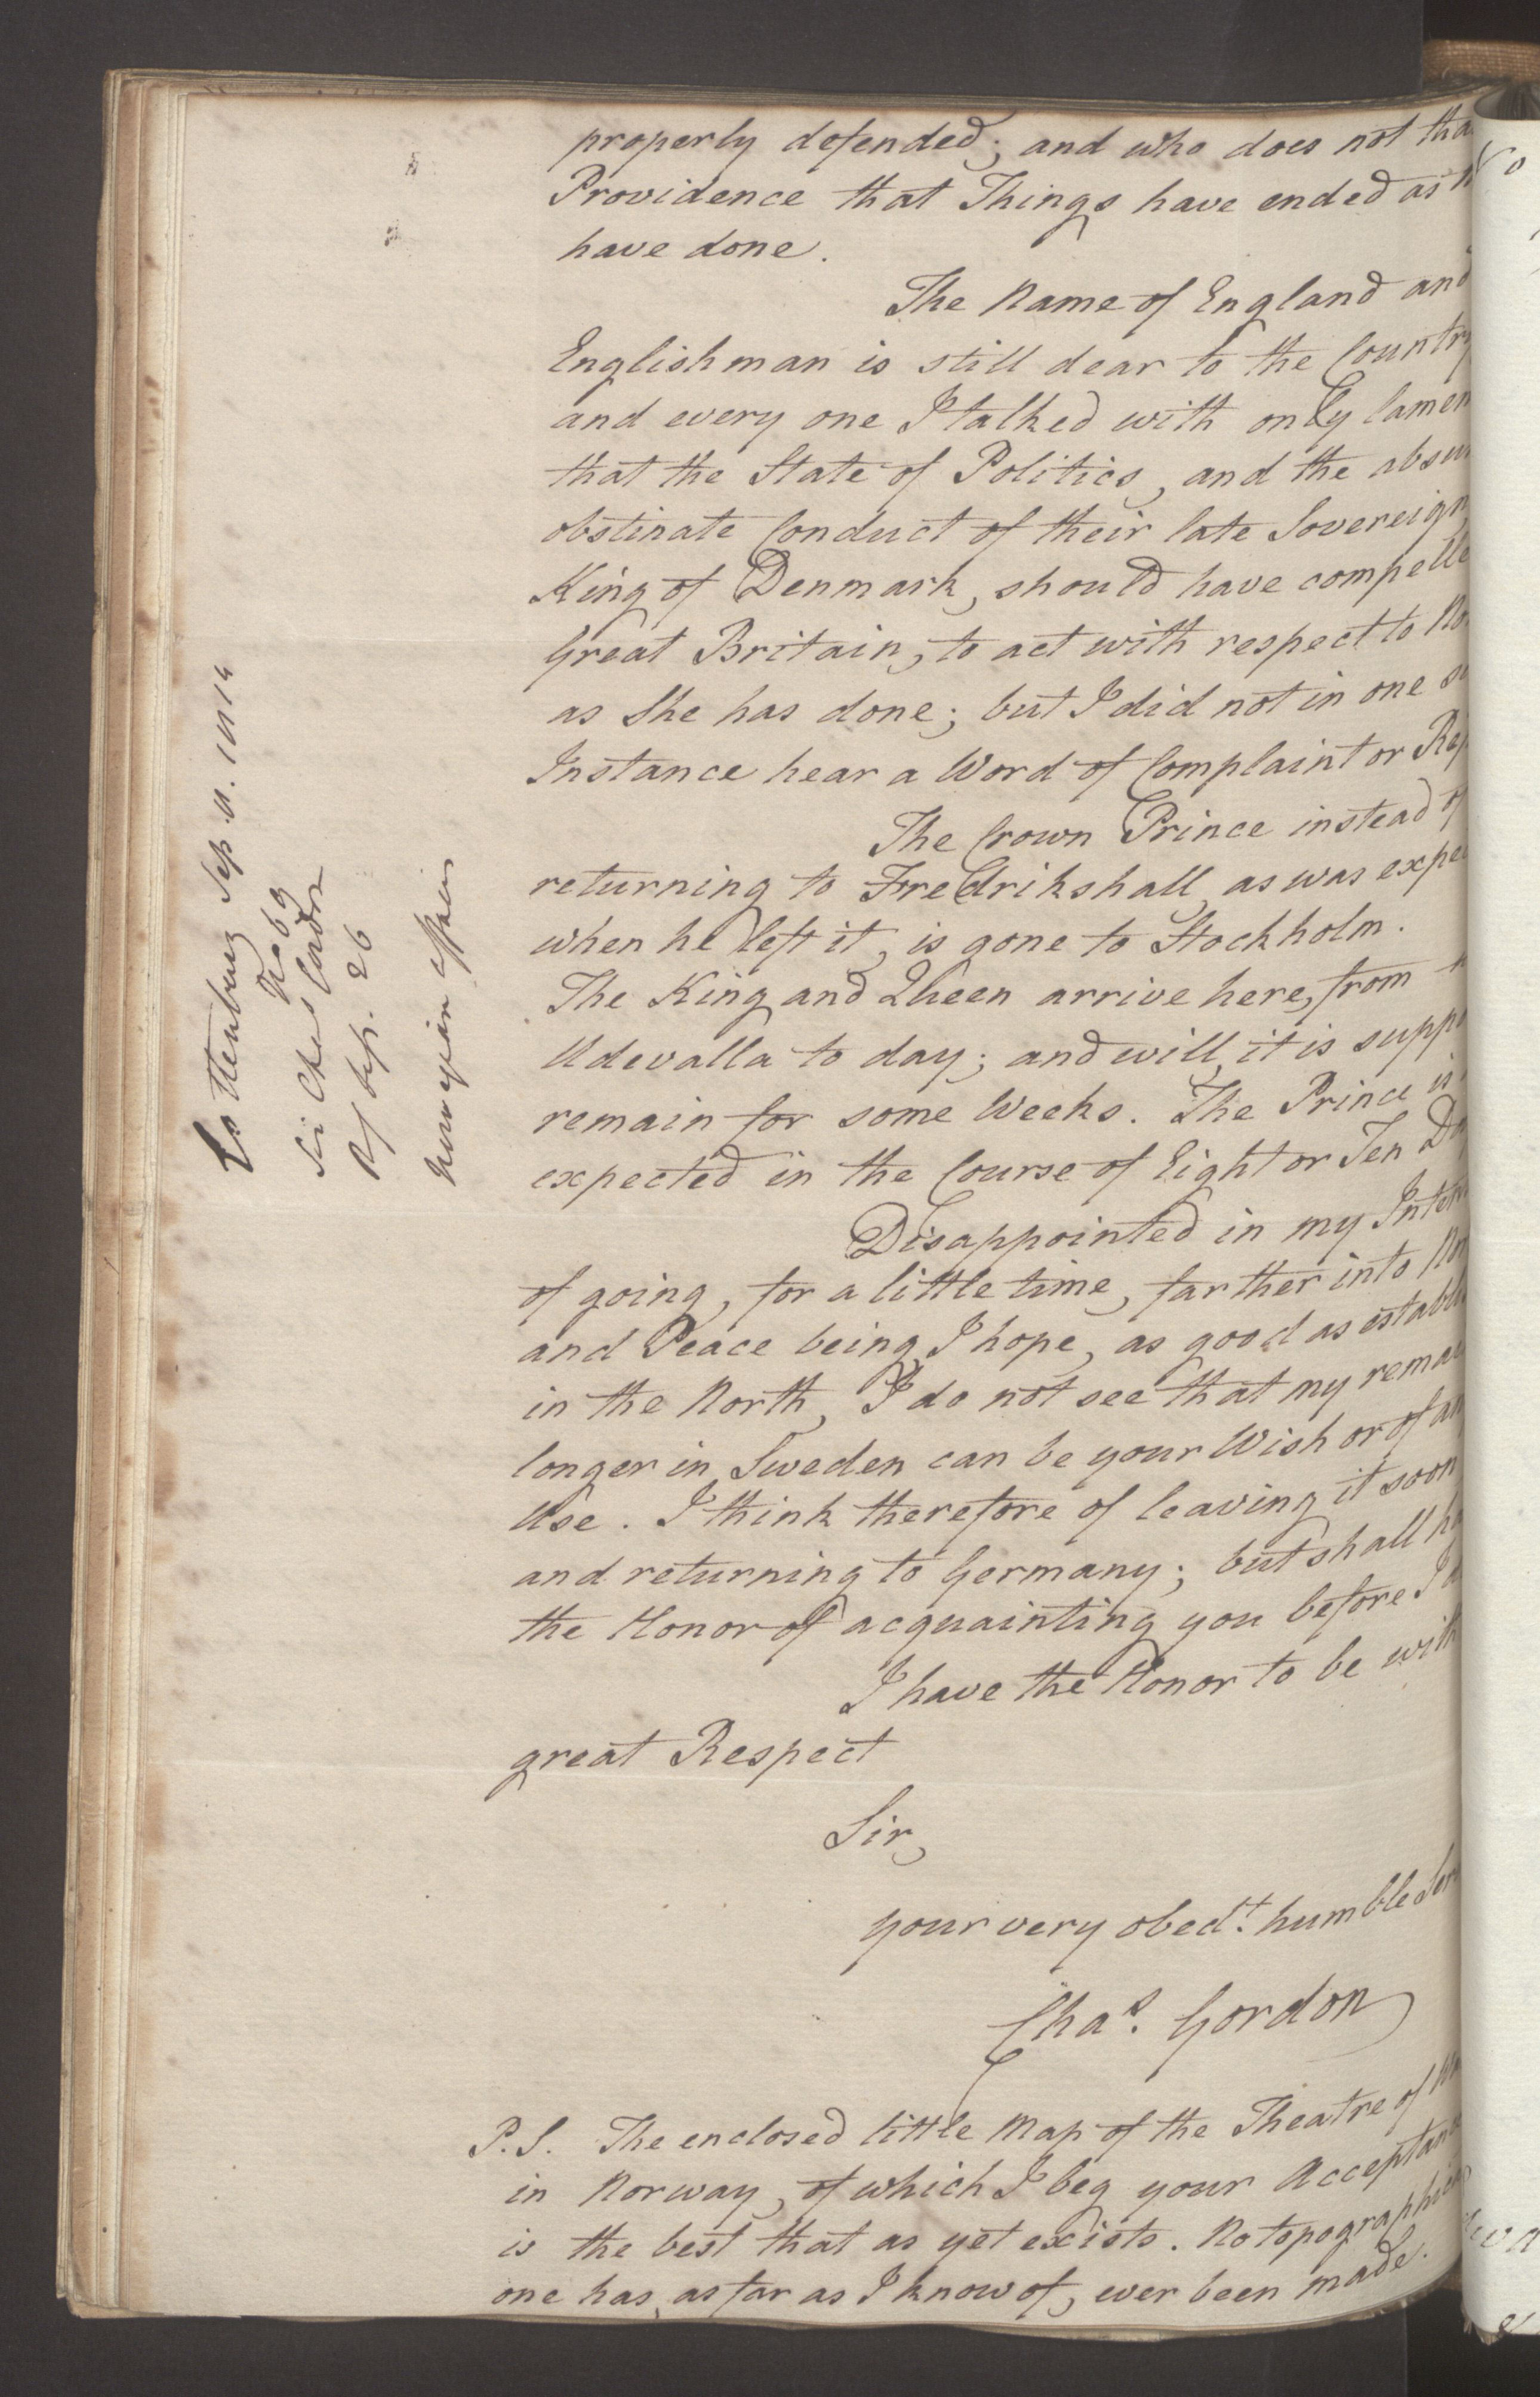 properly defended; and who does not tha
Providence that Things have ended as
have done.
The Name of England and
Englishman is still dear to the Country
and every one I talked with only lamen
that the State of Politics, and the absu
obstinate Conduct of their late Sovereign
King of Denmark, should have compelle
Great Britain, to act with respect to No
as She has done; but I did not in one
Instance hear a Word of Complaint or Rep
The Crown Prince instead of
returning to Fredrikshall, as was expe
when he left it, is gone to Stockholm.
The King and Queen arrive here, from
Udevalla to day; and will, it is suppo
remain for some Weeks. The Prince is
expected in the Course of Eight or Ten Da
Disappointed in my Inten
of going, for a little time, farther into No
and Peace being, I hope, as good as establ
in the North, I do not see that my remai
longer in Sweden can be your Wish or of an
Use. I think therefore of leaving it soon
and returning to Germany; but shall ha
the Honor of acquainting you before I
I have the Honor to be with
great Respect
Sir,
your very obedt. humble Ser
Chas. Gordon
P.S. The enclosed little Map of the Theatre of
in Norway, of which I beg your Acceptance
is the best that as yet exists. No topographic
one has, as far as I know of, ever been made.
Gottenburg Sep. 1814
No 69
Sir Chas Gordon
R/ Sep. 26
Norwegian affairs